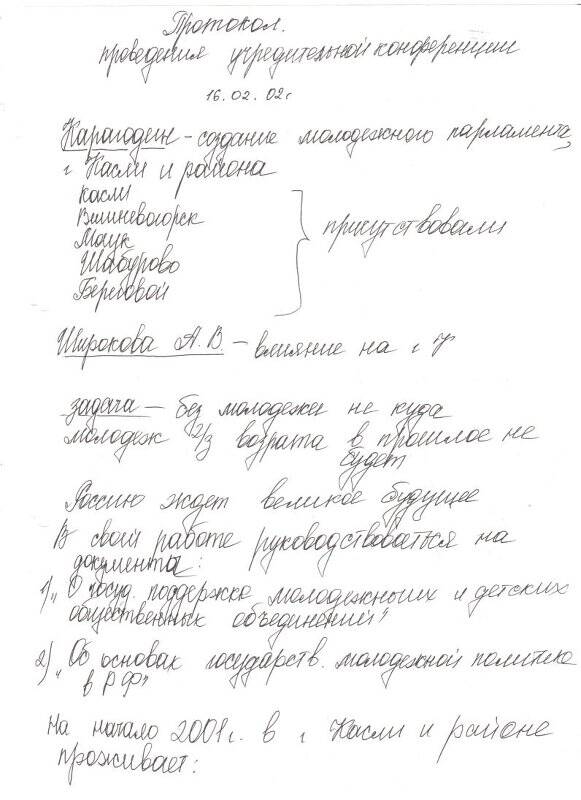 Протокол.
проведения учредительной конференции
16.02.02г
Карагодин - создание молодежного парламента,
г Касли и района
Касли
Вишневогорск
Маук
Шабурово
Береговой
присутствовали
Широкова А.В. - влияние на г
задача - без молодежи не куда
молодеж 2/3 возрата в прошлое не
будет
Россию ждет великое будущее
В своей работе руководствоваться на
документа:
1) „О госуд. поддержке молодежных и детских
общественных объединений"
2) „Об основах государств. молодежной политике
в РФ"
На начало 2001г. в г Касли и районе
проживает: